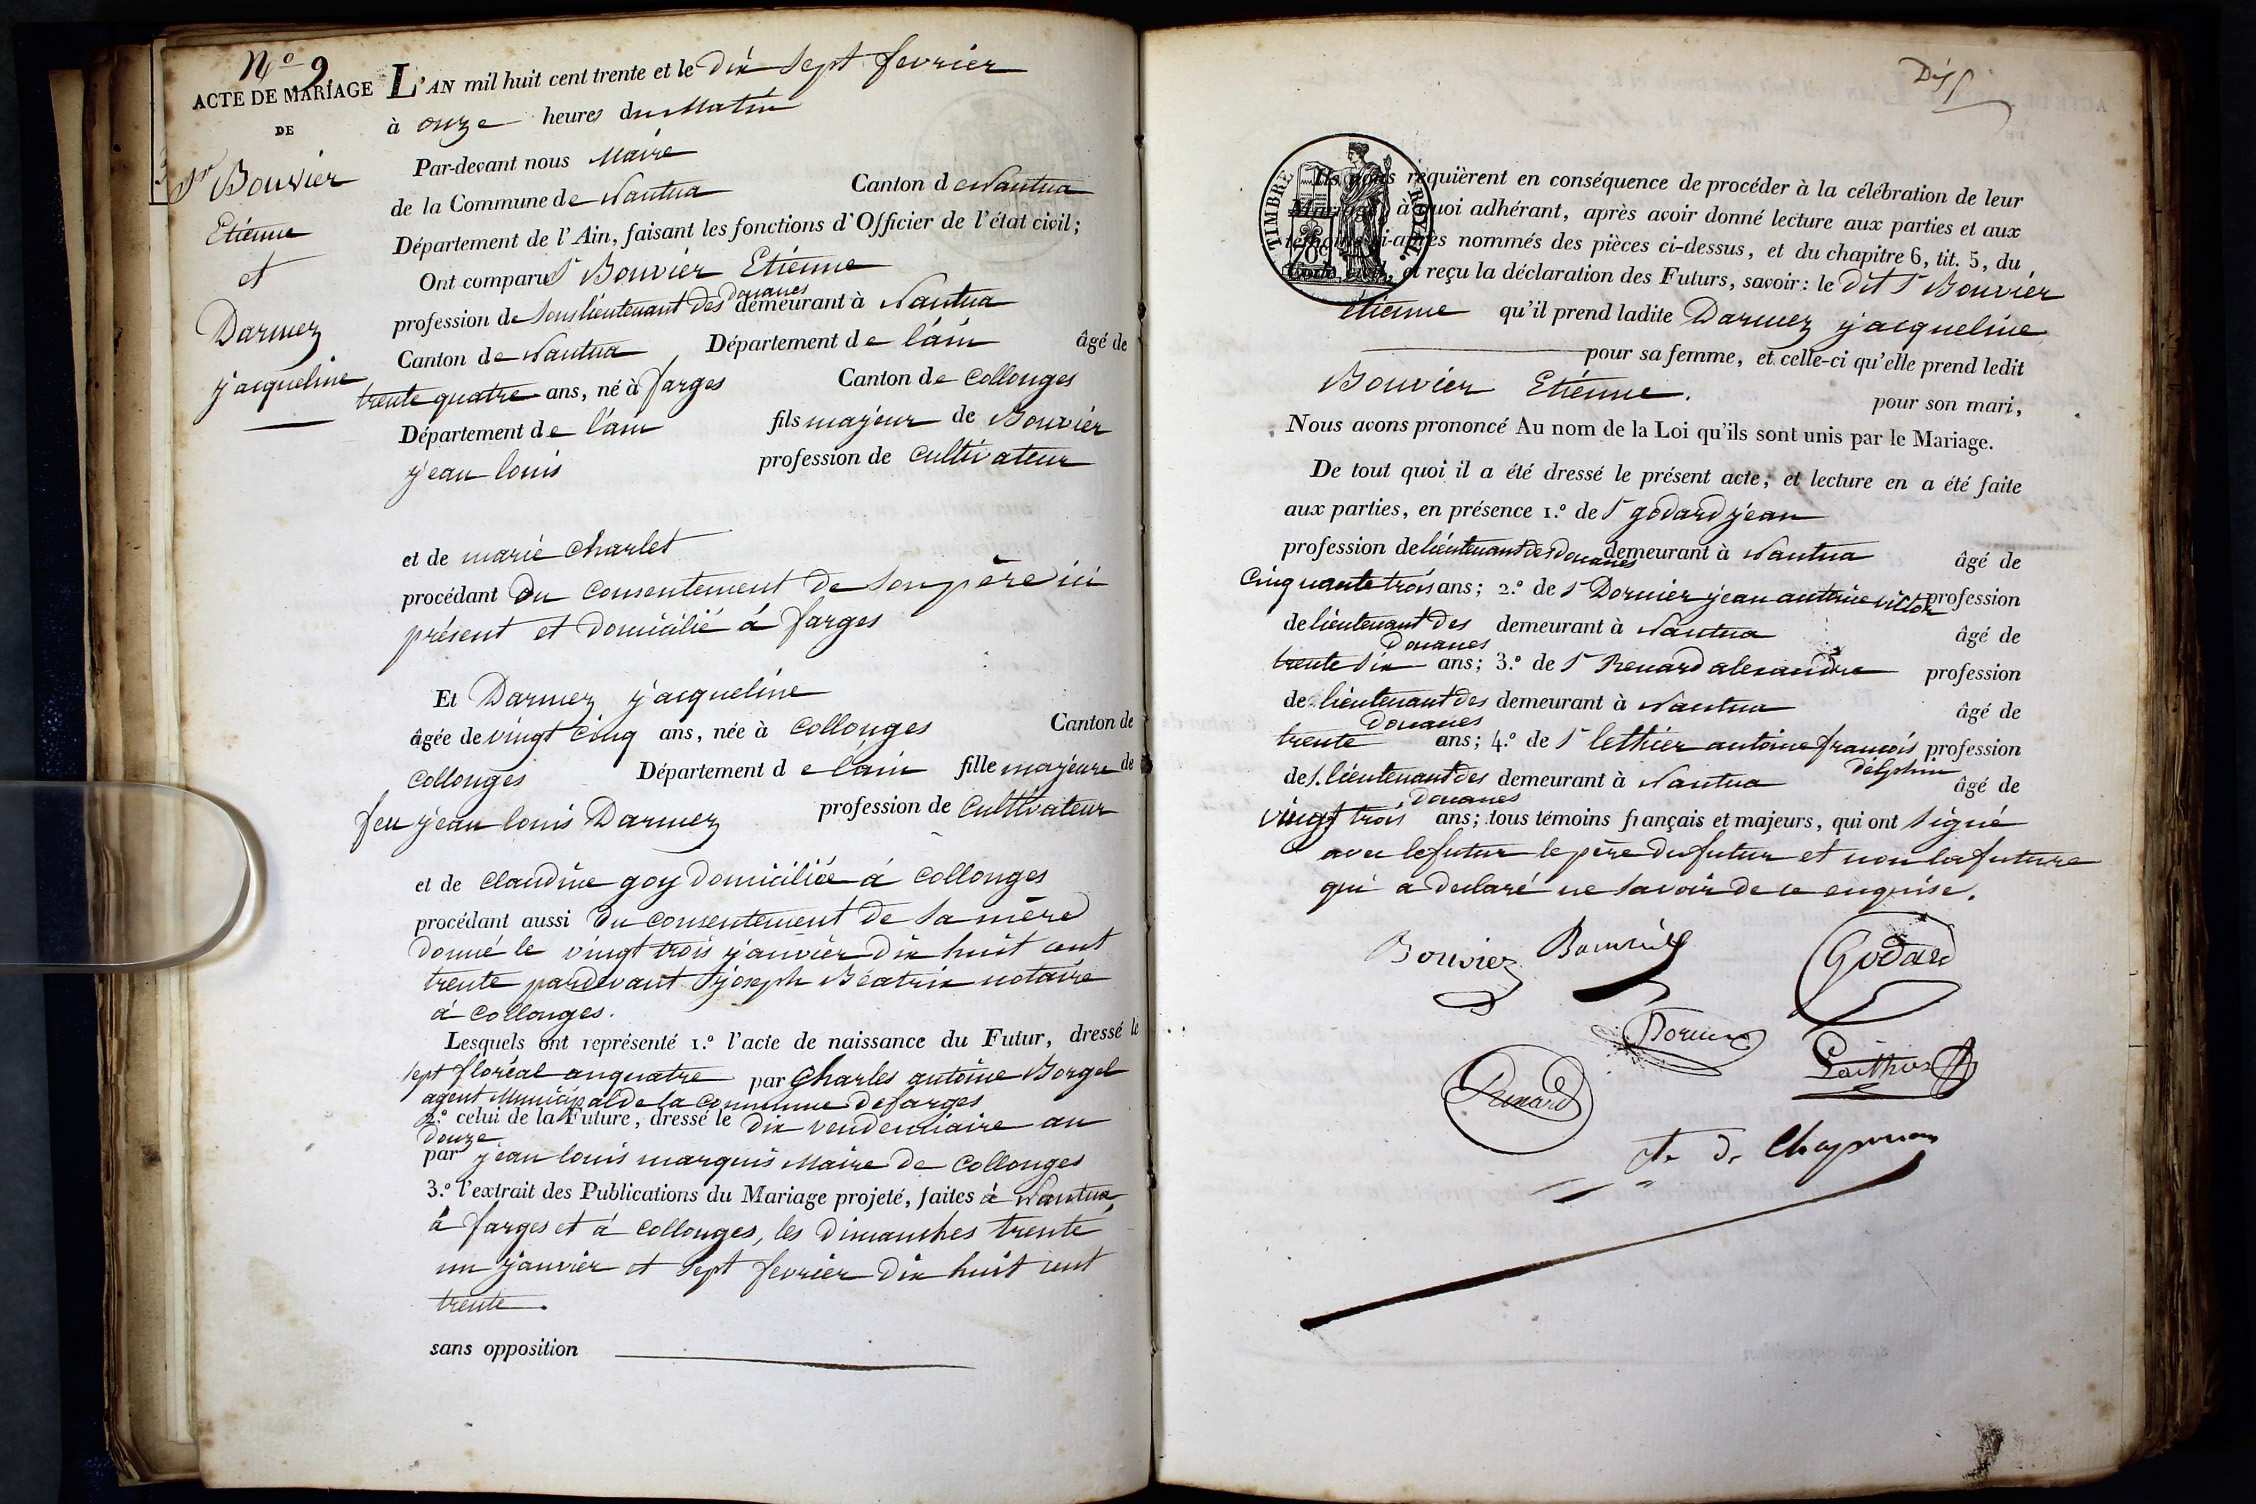 N.o 9
ACTE DE MARIAGE
DE
Sr Bouvier
Etienne
et
Darmez
jacqueline
L'AN mil huit cent trente et le dix sept fevrier
à onze heures du Matin
Par-devant nous Maire
de la Commune de Nantua Canton de Nantua
Département de l'Ain, faisant les fonctions d'Officier de l'état civil;
Ont comparu Sr Bouvier Etienne
profession de Sous lieutenant des douanes demeurant à Nantua
Canton de Nantua Département de l'ain âgé de
trente quatre ans, né à farges Canton de Collonges
Département de l'ain fils majeur de Bouvier
jean louis profession de cultivateur
et de marie charlet
procédant du consentement de son père ici
présent et domicilié à farges
Et Darmez jacqueline
âgée de vingt cinq ans, née à Collonges Canton de
Collonges Département de l'ain fille majeure de
feu jean louis Darmez profession de Cultivateur
et de claudine goy domiciliée à Collonges
procédant aussi du consentement de sa mère
donné le vingt trois janvier dix huit cent
trente pardevant Sr joseph Béatrix notaire
à Collonges.
Lesquels ont représenté 1.o l'acte de naissance du Futur, dressé le
sept floréal an quatre par Charles antoine Borgel
agent Municipal de la commune de farges
2.o celui de la Future, dressé le dix vendemiaire an
douze
par jean louis marquis Maire de Collonges
3.o l'extrait des Publications du Mariage projeté, faites à Nantua,
à farges et à Collonges, les dimanches trente
un janvier et sept fevrier dix huit cent
trente.
sans opposition
TIMBRE ROYAL.
70c
Ils nous requièrent en conséquence de procéder à la célébration de leur
Mariage, à quoi adhérant, après avoir donné lecture aux parties et aux
témoins ci-après nommés des pièces ci-dessus, et du chapitre 6, tit. 5, du
Code civil, et reçu la déclaration des Futurs, savoir: le dit Sr Bouvier
etienne qu'il prend ladite Darmez jacqueline
pour sa femme, et celle-ci qu'elle prend ledit
Bouvier Etienne. pour son mari,
Nous avons prononcé Au nom de la Loi qu'ils sont unis par le Mariage.
De tout quoi il a été dressé le présent acte; et lecture en a été faite
aux parties, en présence 1.o de Sr godard jean
profession de lieutenant des douanes demeurant à Nantua âgé de
Cinquante trois ans; 2.o de Sr Dornier jean antoine victor profession
de lieutenant des douanes demeurant à Nantua âgé de
trente six ans; 3.o de Sr Renard alexandre profession
de s. lieutenant des douanes demeurant à Nantua âgé de
trente ans; 4.o de Sr lethier antoine françois délphin profession
de s. lieutenant des douanes demeurant à Nantua âgé de
vingt trois ans; tous témoins français et majeurs, qui ont signé
avec le futur le père du futur et non la future
qui a declaré ne savoir de ce enquise.
Bouvier Bouvier Godard
Dornier
Renard Laithier